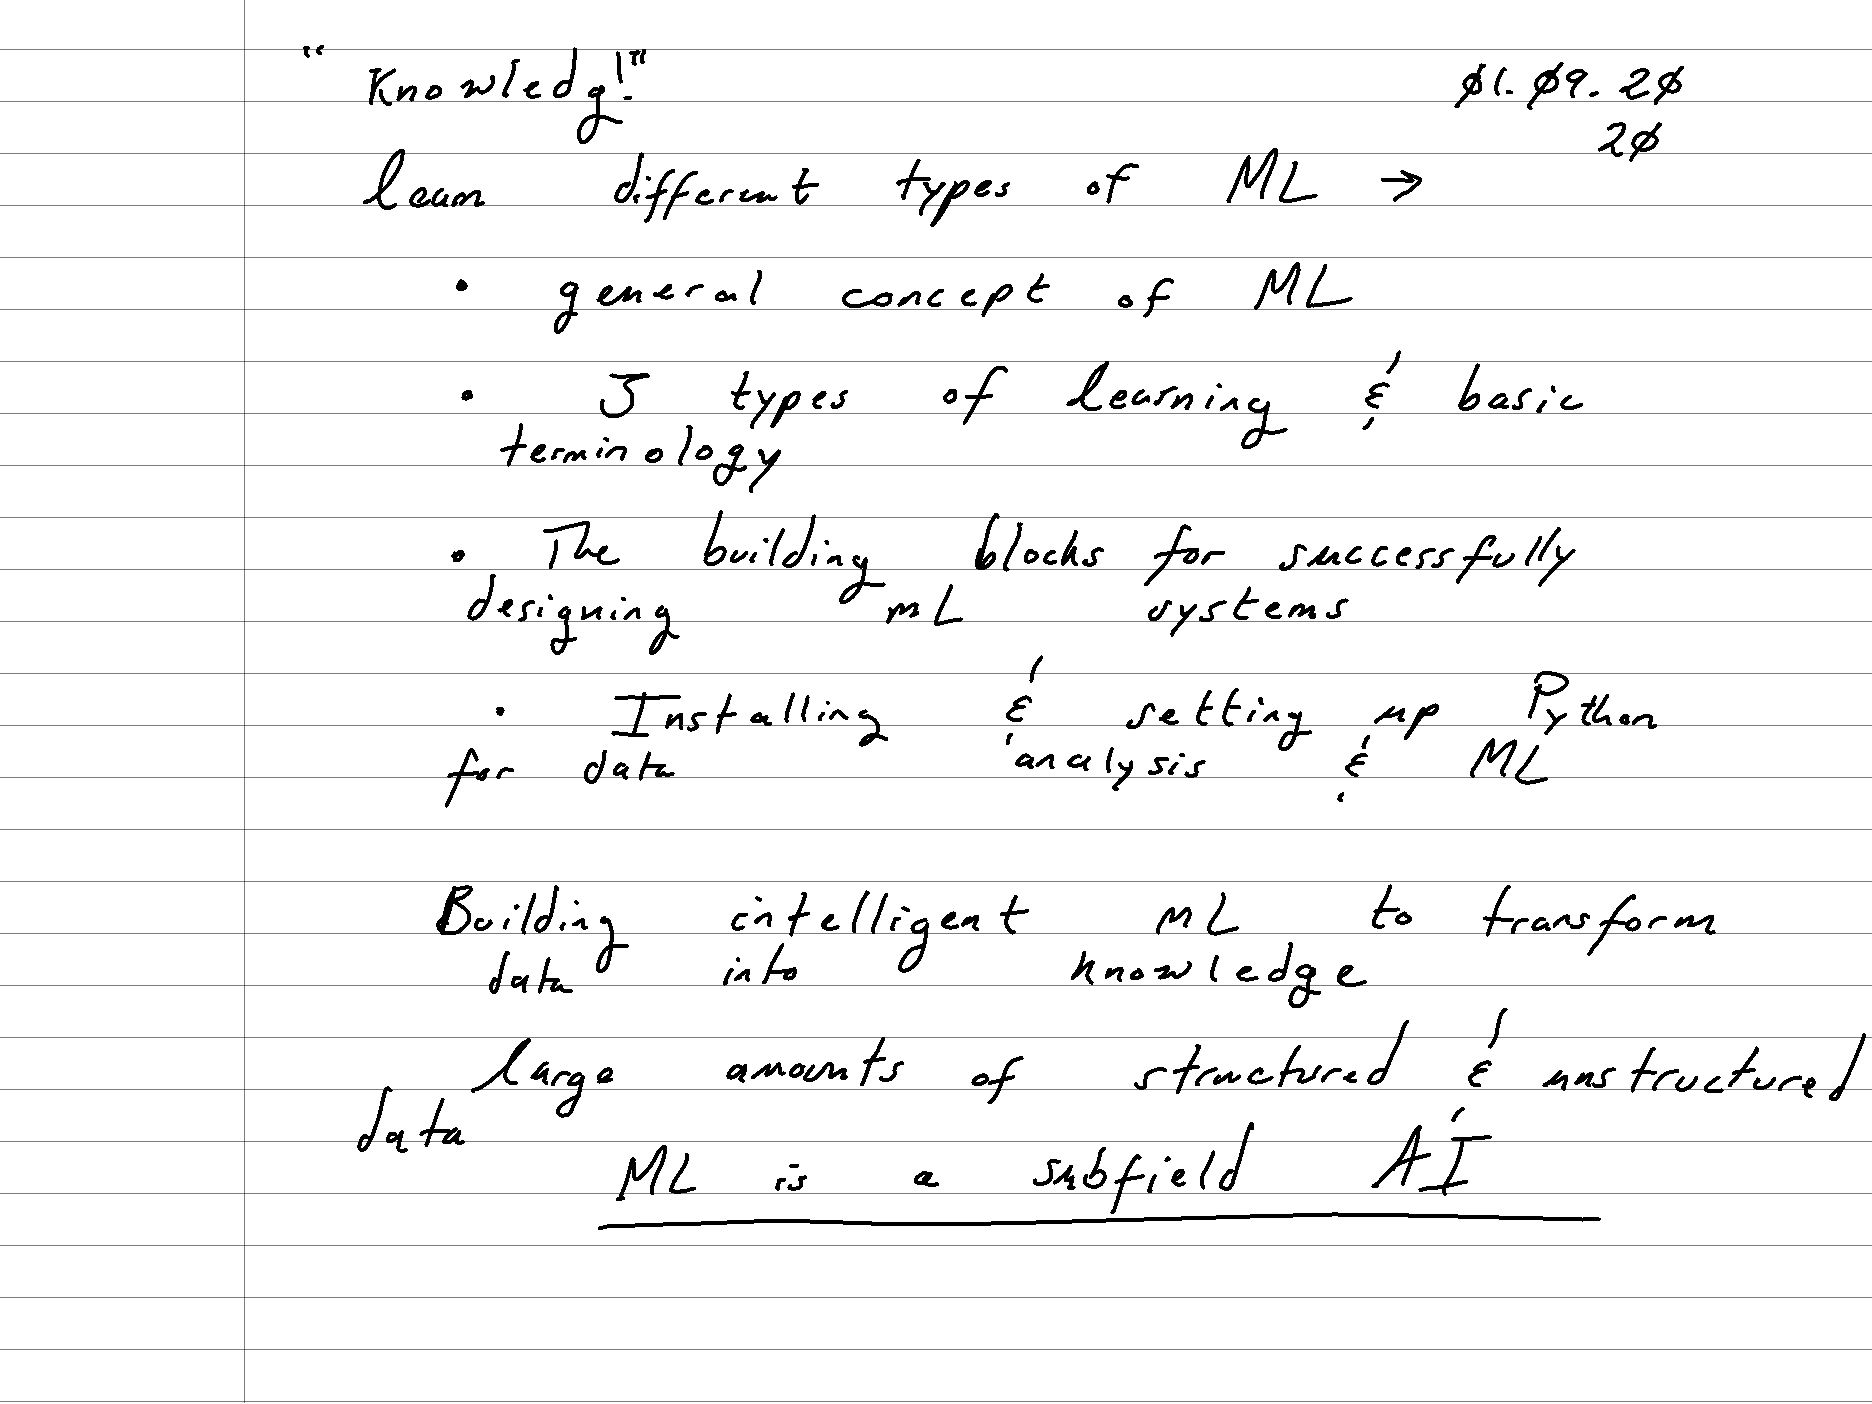 "Knowledg!"
01.09.20
20
learn different types of ML →
• general concept of ML
• 3 types of learning & basic
terminology
• The building blocks for successfully
designing mL systems
• Installing & setting up Python
for data analysis & ML
Building intelligent mL to transform
data into knowledge
large amounts of structured & unstructured
data
ML is a subfield AI